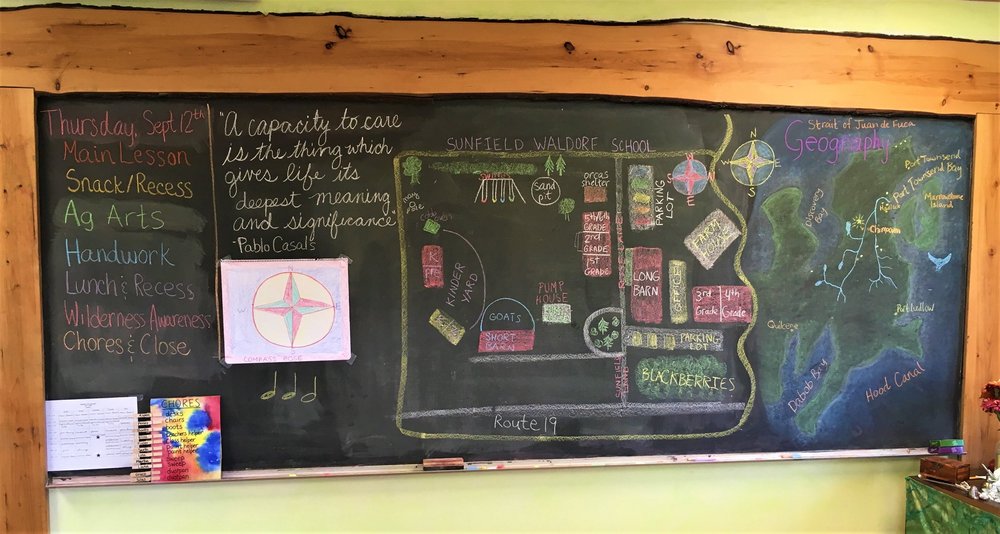 Thursday, Sept 12th
Main Lesson
Snack/Recess
Ag Arts
Handwork
Lunch & Recess
Wilderness Awareness
Chores & Close
"A capacity to care
is the thing which
gives life its
deepest meaning
and significance"
-Pablo Casals
W
E
COMPASS ROSE
CHORES
desks
chairs
boots
sweep
sweep
SUNFIELD WALDORF SCHOOL
sand
pit
orcas
shelter
PARKING
LOT
5th/6th
GRADE
2nd
GRADE
1st
GRADE
FARM
K
PFK
KINDER
YARD
GOATS
SHORT
BARN
PUMP
HOUSE
LONG
BARN
OFFICE
3rd
Grade
4th
Grade
PARKING
LOT
BLACKBERRIES
SUNFIELD
Route 19
N
W
E
S
Geography
Strait of Juan de Fuca
Port Townsend
Port Townsend Bay
Marrowstone
Island
Discovery
Bay
Chimacum
Port Ludlow
Quilcene
Dabob Bay
Hood Canal